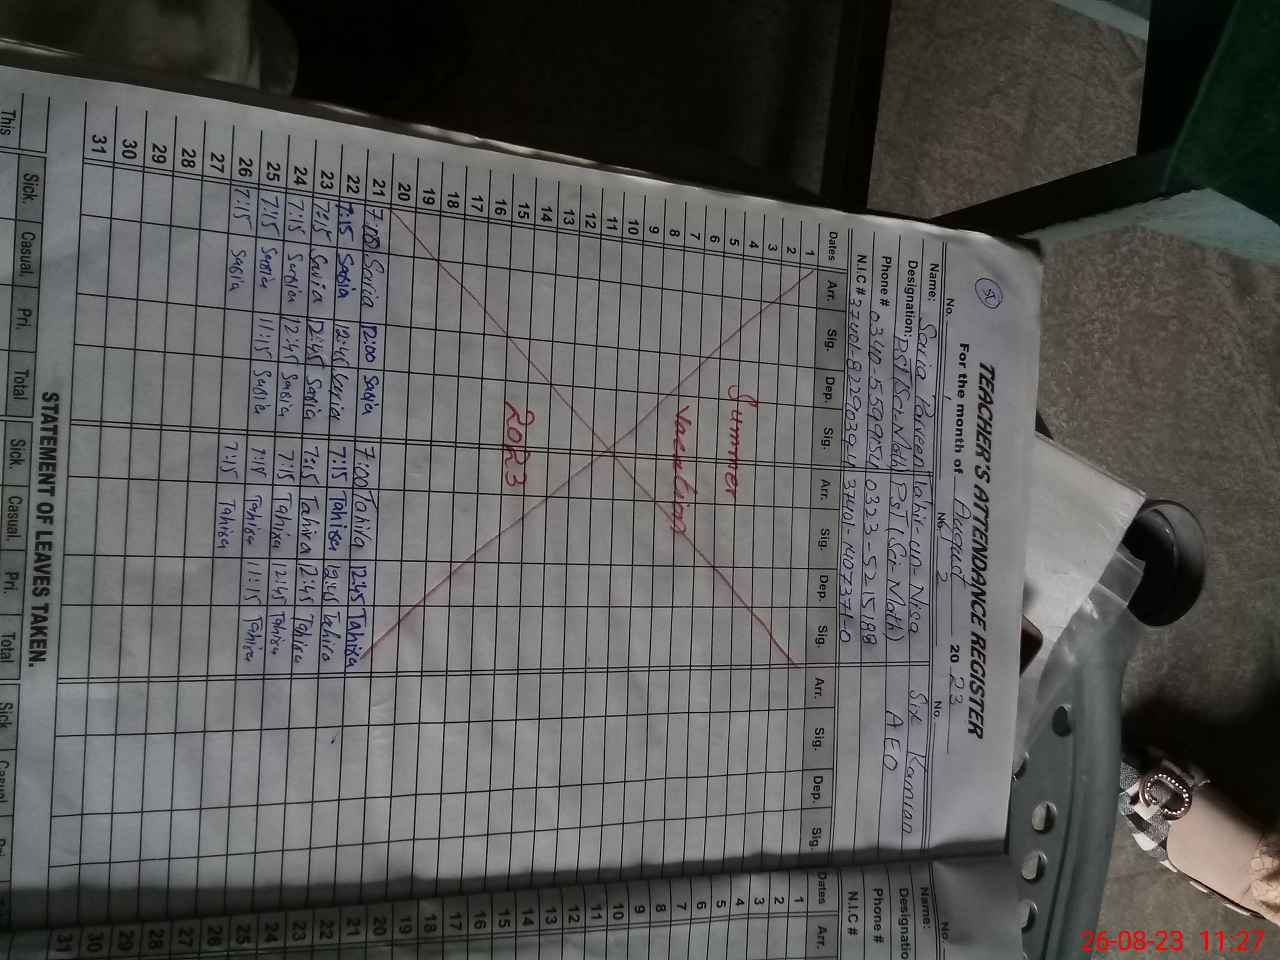 TEACHER'S ATTENDANCE REGISTER
For the month of August 2023
No. 1 No. 2 No.
Name: Savia Parveen Tahir-un-Nisa Six Kamran
Designation: PST (Sci Math) PST (Sci-Math) AEO
Phone # 0323-5215188
N.I.C #
Dates Arr. Sig. Dep. Sig. Arr. Sig. Dep. Sig. Arr. Sig. Dep. Sig.
1
2
3
4
5
6
7
8
9
10
11
12
13
14
15
16
17
18
19
20
Summer
Vacation
2023
21 7:00 Savia 12:00 Sabia 7:00 Tahira 12:45 Tahira
22 7:15 Sabia 12:45 Savia 7:15 Tahira 12:45 Tahira
23 7:15 Savia 12:45 Sabia 7:15 Tahira 12:45 Tahira
24 7:15 Sabia 12:45 Sabia 7:15 Tahira 12:45 Tahira
25 7:15 Sabia 11:15 Sabia 7:15 Tahira 11:15 Tahira
26 7:15 Sabia 7:15 Tahira
27
28
29
30
31
STATEMENT OF LEAVES TAKEN.
This Sick. Casual. Pri. Total Sick. Casual. Pri. Total Sick Casual
No.
Name:
Designatio
Phone #
N.I.C #
Dates Arr.
1
2
3
4
5
6
7
8
9
10
11
12
13
14
15
16
17
18
19
20
21
22
23
24
25
26
27
28
29
30
31
26-08-23 11:27